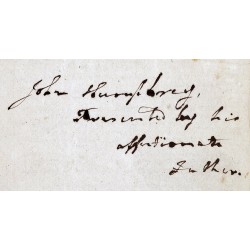 John Humphrey,
Presented by his
affectionate
Father.